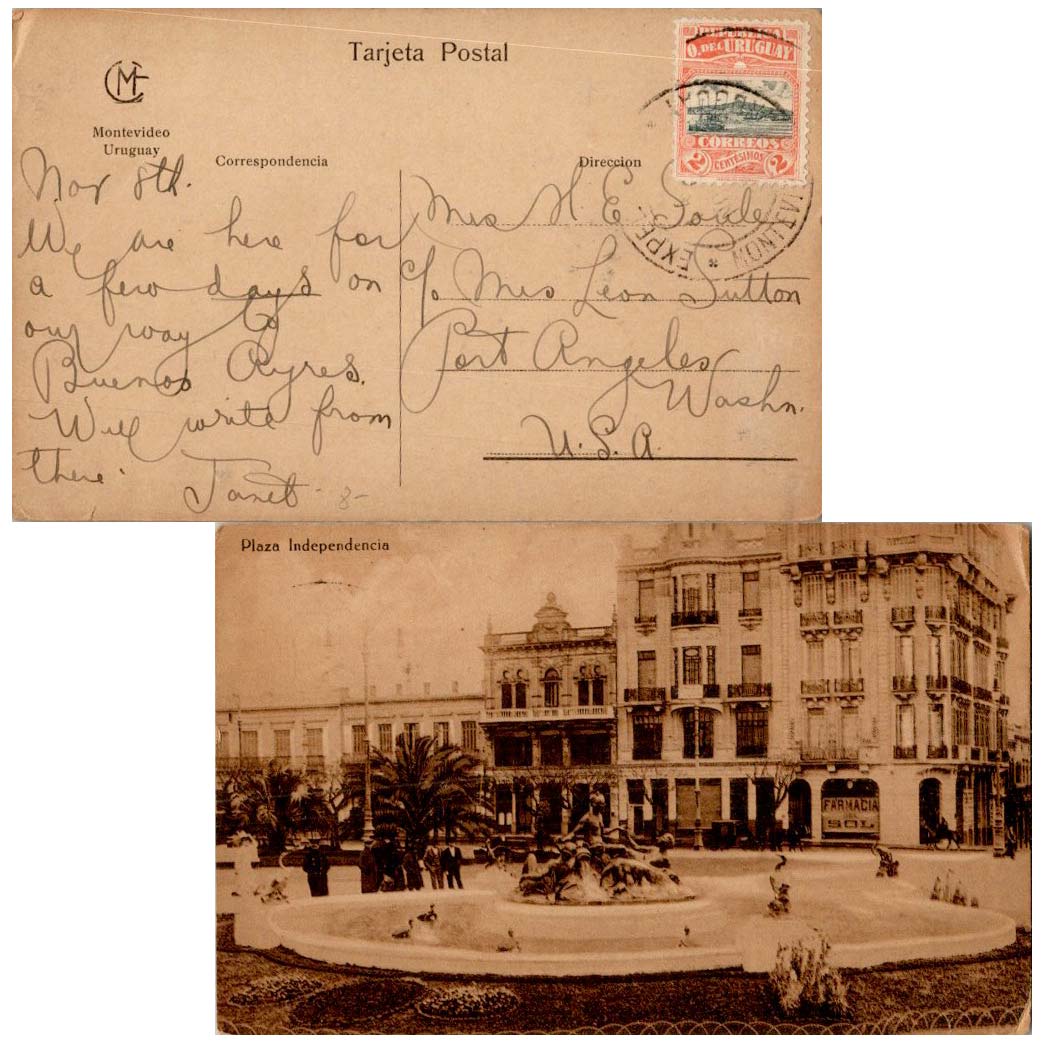 Tarjeta Postal
CMF
Montevideo
Uruguay
Correspondencia
Direccion
REPUBLICA
O. DEL URUGUAY
CORREOS
2 CENTÉSIMOS 2
EXPE
MONTEVI
Nov 8th.
We are here for
a few days on
our way to
Buenos Ayres.
Will write from
there.
Janet
-8-
Mrs H. E. Soule
c/o Mrs Leon Sutton
Port Angeles
Washn.
U.S.A.
Plaza Independencia
FARMACIA
SOL